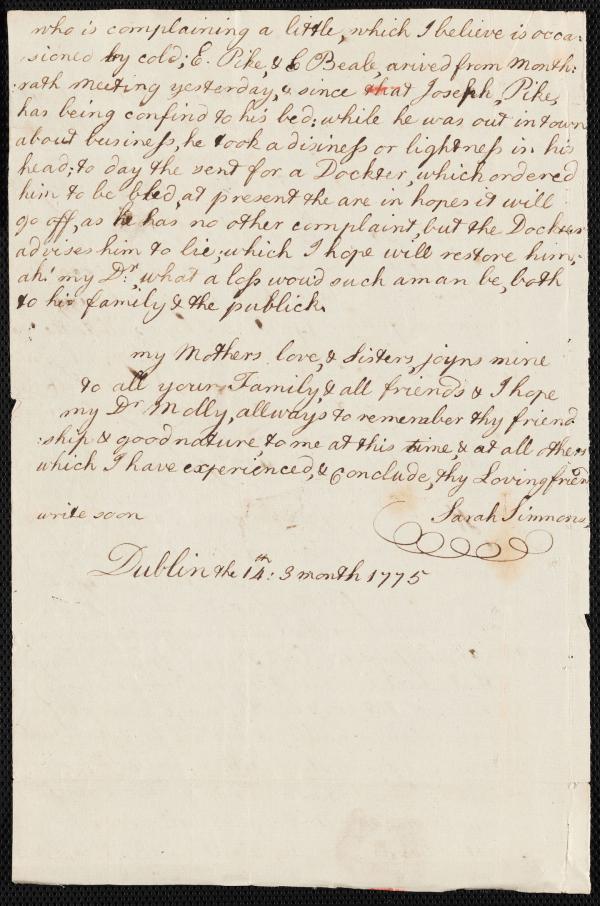 who is complaining a little, which I believe is occa:
:sioned by cold; E. Pike, & E Beale, arived from Month:
:rath Meeting yesterday, & since that Joseph, Pike,
has being confind to his bed: while he was out in town
about business, he took a disiness or lightness in his
head: to day the sent for a Dockter, which ordered
him to be bled, at present the are in hopes it will
go off, as he has no other complaint, but the Dockter
advises him to lie; which I hope will restore him;
ah! my Dr, what a loss woud such a man be, both
to his family & the publick.
my Mothers love, & Sisters, joyns mine
to all your Family, & all friends & I hope
my Dr Molly, allways to remember thy friend
:ship & good nature, to me at this time, & at all others
which I have experienced, & Conclude, thy Loving friend
write soon Sarah Simmons,
Dublin the 14th: 3 month 1775